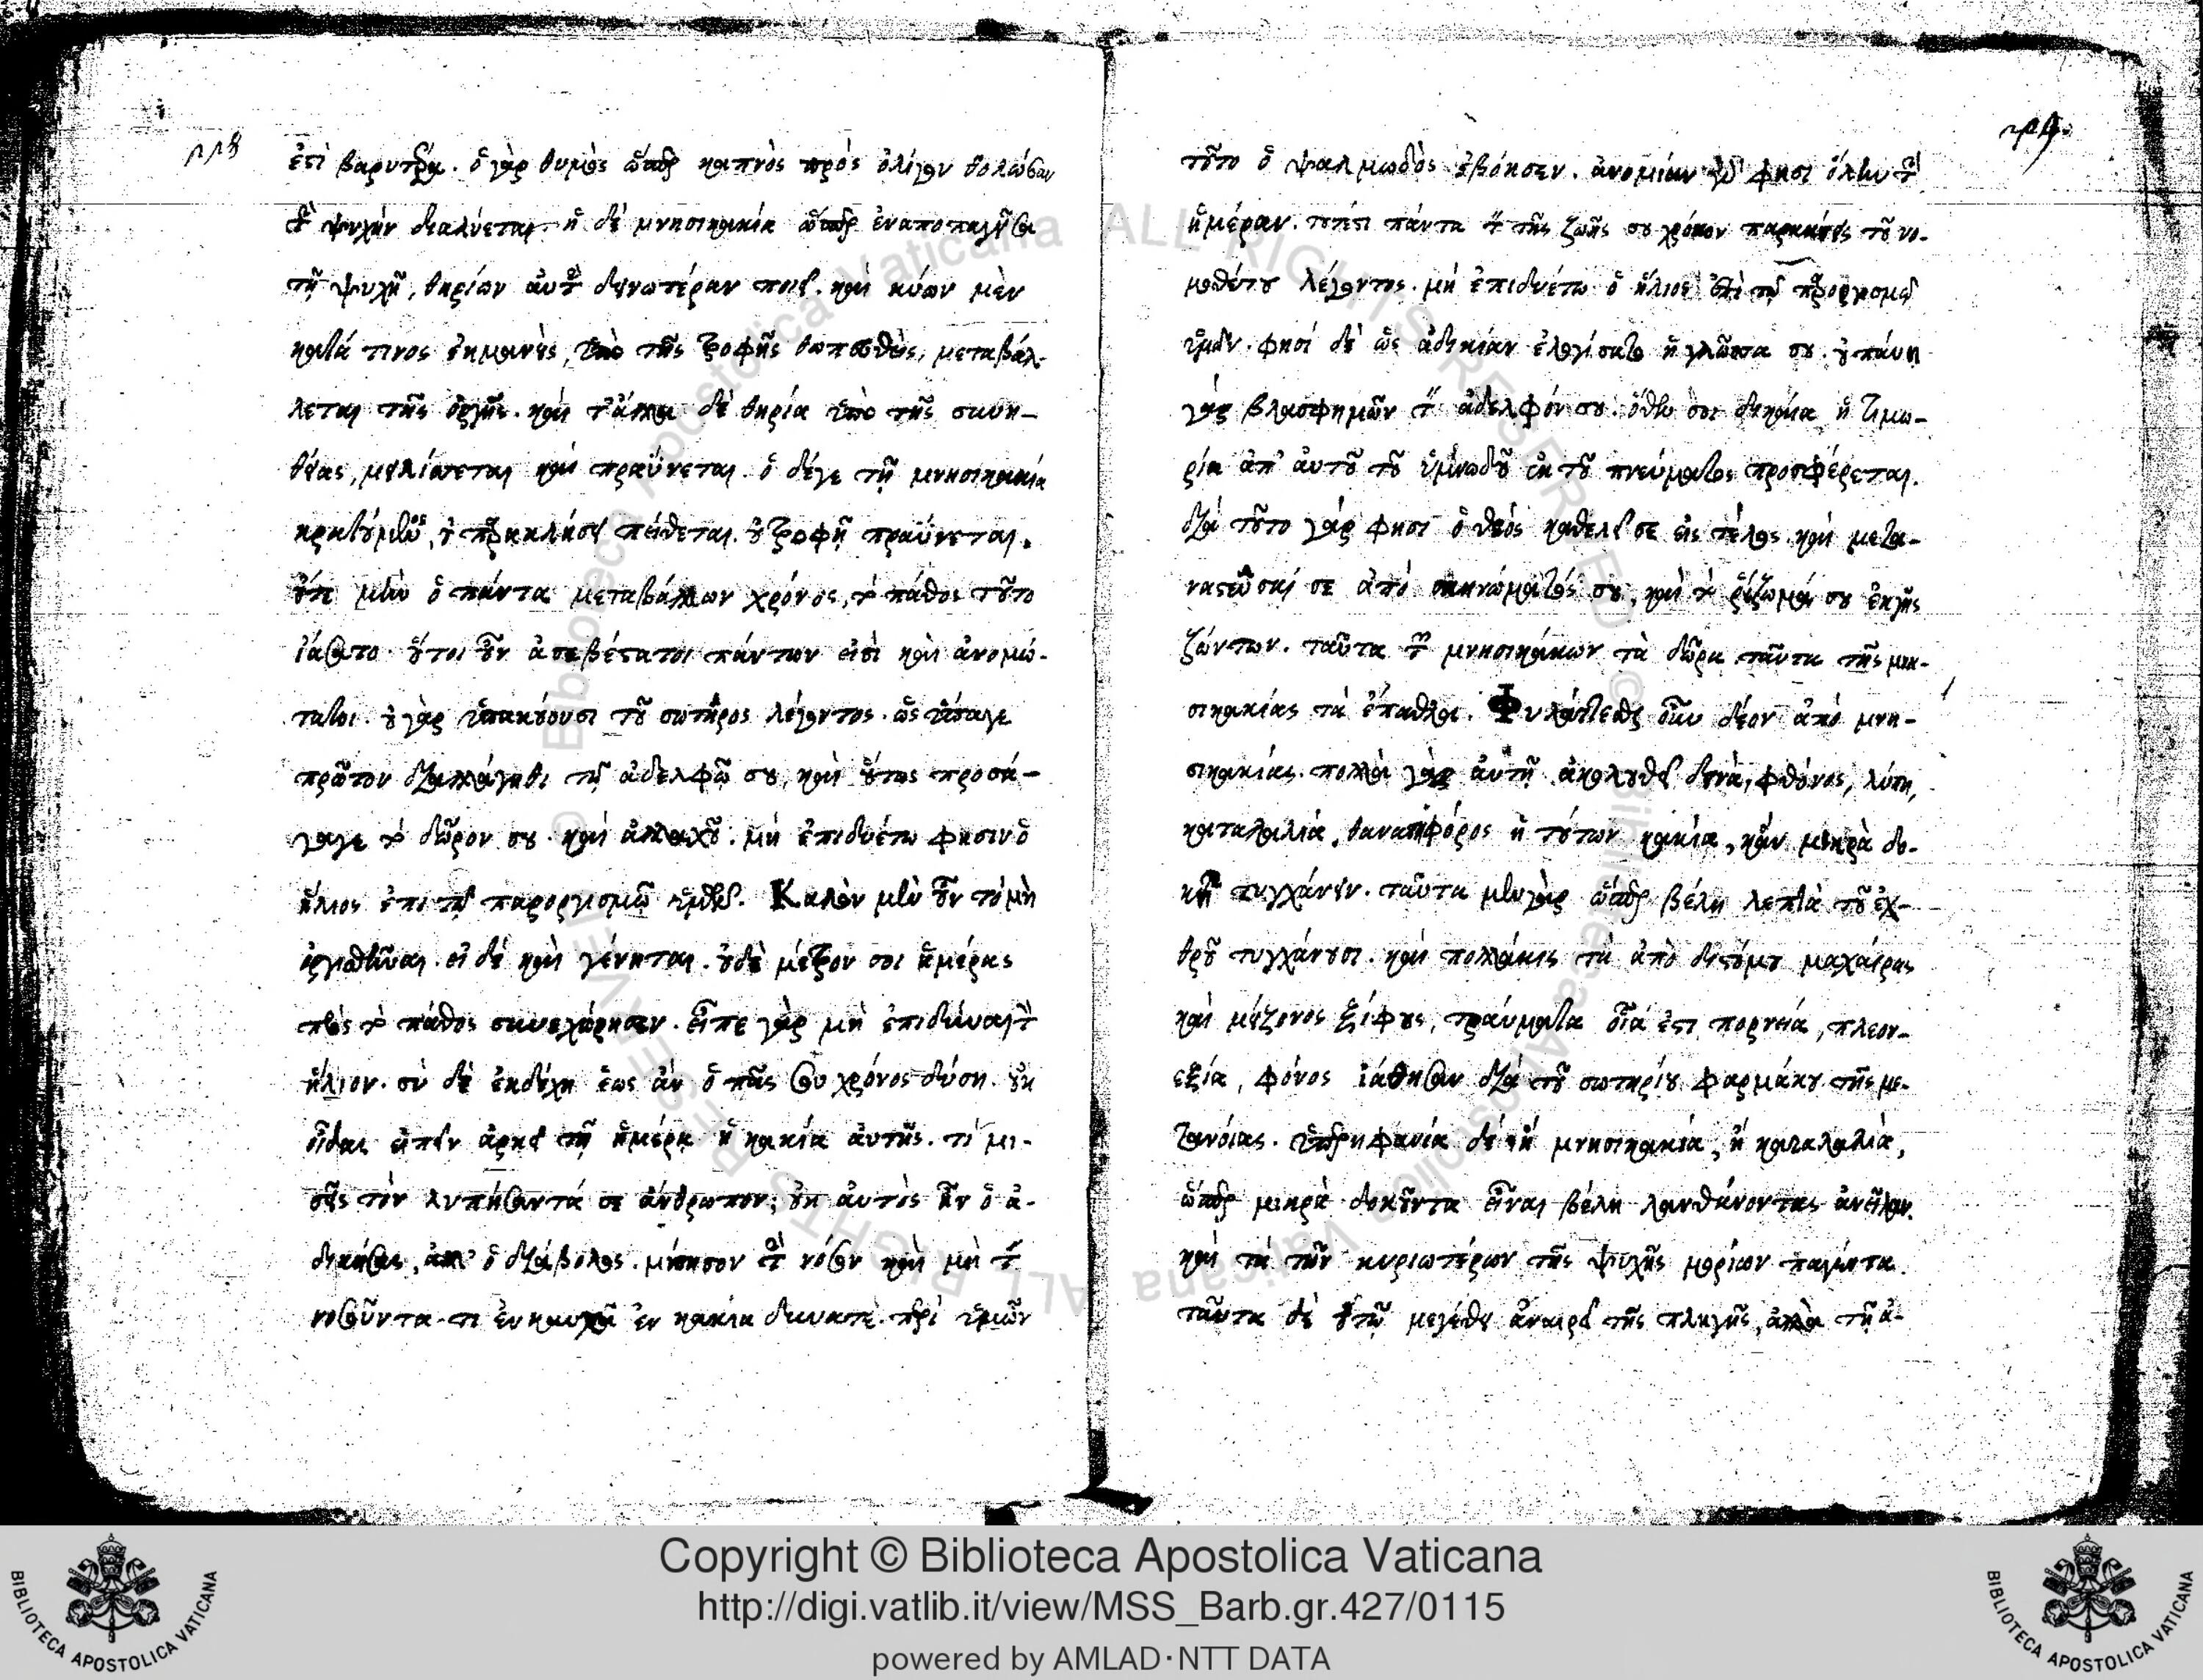 ἐστὶ βαρυτέρα. ὁ γὰρ θυμὸς ὥσπερ καπνὸς πρὸς ὀλίγον θολώσας
τὴν ψυχὴν διαλύεται. ἡ δὲ μνησικακία ὥσπερ ἐναποπαγεῖσα
τῇ ψυχῇ, θηρίων αὐτὴν δεινοτέραν ποιεῖ. καὶ κύων μὲν
κατά τινος ἐκμανεὶς, ὑπὸ τῆς τροφῆς θωπευθεὶς, μεταβάλ-
λεται τῆς ὀργῆς. καὶ τἄλλα δὲ θηρία ὑπὸ τῆς συνη-
θείας, μειλίσσεται καὶ πραΰνεται. ὁ δέ γε τῇ μνησικακία
κρατούμενος, οὐ παρακλήσει πείθεται. οὐ τροφῇ πραΰνεται.
οὔτε μὴν ὁ πάντα μεταβάλλων χρόνος, τὸ πάθος τοῦτο
ἰάσατο. οὗτοι οὖν ἀσεβέστατοι πάντων εἰσὶ καὶ ἀνομώ-
τατοι. οὐ γὰρ ὑπακούουσι τοῦ σωτῆρος λέγοντος. ὡς ὕπαγε
πρῶτον διαλλάγηθι τῷ ἀδελφῷ σου, καὶ οὕτως προσά-
γαγε τὸ δῶρον σου. καὶ ἀλλαχοῦ. μὴ ἐπιδυέτω φησιν ὁ
ἥλιος ἐπὶ τῷ παροργισμῷ ὑμῶν. Καλὸν μὲν οὖν τὸ μὴ
ὀργισθῆναι. εἰ δὲ καὶ γένηται. οὐδὲ μεῖζον σοι ἡμέρας
πρὸς τὸ πάθος συνεχώρησεν. εἶπε γὰρ μὴ ἐπιδύναι τὸν
ἥλιον. σὺ δὲ ἐκδέχῃ ἕως ἂν ὁ πᾶς σου χρόνος δύσῃ. οὐκ
οἶδας εἰπεῖν ἀρκεῖ τῇ ἡμέρᾳ ἡ κακία αὐτῆς. τί μι-
σεῖς τὸν λυπήσαντά σε ἄνθρωπον; οὐκ αὐτὸς ἦν ὁ ἀ-
δικήσας, ἀλλ' ὁ διάβολος. μίσησον τὴν νόσον καὶ μὴ τὸν
νοσοῦντα. τί ἐγκαυχᾷ ἐν κακία δυνατέ. περὶ ὑμῶν
τοῦτο ὁ ψαλμωδὸς ἐβόησεν. ἀνομίαν φησι ὅλην τὴν
ἡμέραν. τουτέστι πάντα τὸν τῆς ζωῆς σου χρόνον παρακούεις τοῦ νο-
μοθέτου λέγοντος. μὴ ἐπιδυέτω ὁ ἥλιος ἐπὶ τῷ παροργισμῷ
ὑμῶν. φησὶ δὲ ὡς ἀδικίαν ἐλογίσατο ἡ γλῶσσα σου. οὐ παύῃ
γὰρ βλασφημῶν τὸν ἀδελφόν σου. ὅθεν σοι δικαία ἡ τιμω-
ρία ἀπ' αὐτοῦ τοῦ ὑμνωδοῦ ἐκ τοῦ πνεύματος προσφέρεται.
διὰ τοῦτο γάρ φησι ὁ θεός καθελεῖ σε εἰς τέλος καὶ μετα-
ναστεῦσαί σε ἀπὸ σκηνώματός σου, καὶ τὸ ῥίζωμά σου ἐκ γῆς
ζώντων. ταῦτα τῶν μνησικάκων τὰ δῶρα ταῦτα τῆς μνη-
σικακίας τὰ ἔπαθλα. Φυλάττεσθαι οὖν δέον ἀπὸ μνη-
σικακίας. πολλὰ γὰρ αὐτῇ ἀκολουθεῖ δεινὰ, φθόνος, λύπη,
καταλαλιά, θανατηφόρος ἡ τούτων κακία, κἂν μικρὰ δο-
κῇ τυγχάνειν. ταῦτα μὲν γὰρ ὥσπερ βέλη λεπτὰ τοῦ ἐχ-
θροῦ τυγχάνουσι. καὶ πολλάκις τὰ ἀπὸ διστόμου μαχαίρας
καὶ μείζονος ξίφους, τραύματα οἷά ἐστι πορνεία, πλεον-
εξία, φόνος ἰάθησαν διὰ τοῦ σωτηρίου φαρμάκου τῆς με-
τανοίας. ὑπερηφανία δέ ἢ μνησικακία, ἢ καταλαλιὰ,
ὥσπερ μικρὰ δοκοῦντα εἶναι βέλη λανθάνοντας ἀνεῖλον.
καὶ τὰ τῶν κυριωτέρων τῆς ψυχῆς μορίων παγέντα.
ταῦτα δὲ οὐ τῷ μεγέθει ἀναιρεῖ τῆς πληγῆς, ἀλλὰ τῇ ἀ-
Copyright © Biblioteca Apostolica Vaticana
http://digi.vatlib.it/view/MSS_Barb.gr.427/0115
powered by AMLAD·NTT DATA
BIBLIOTECA APOSTOLICA VATICANA
BIBLIOTECA APOSTOLICA VATICANA